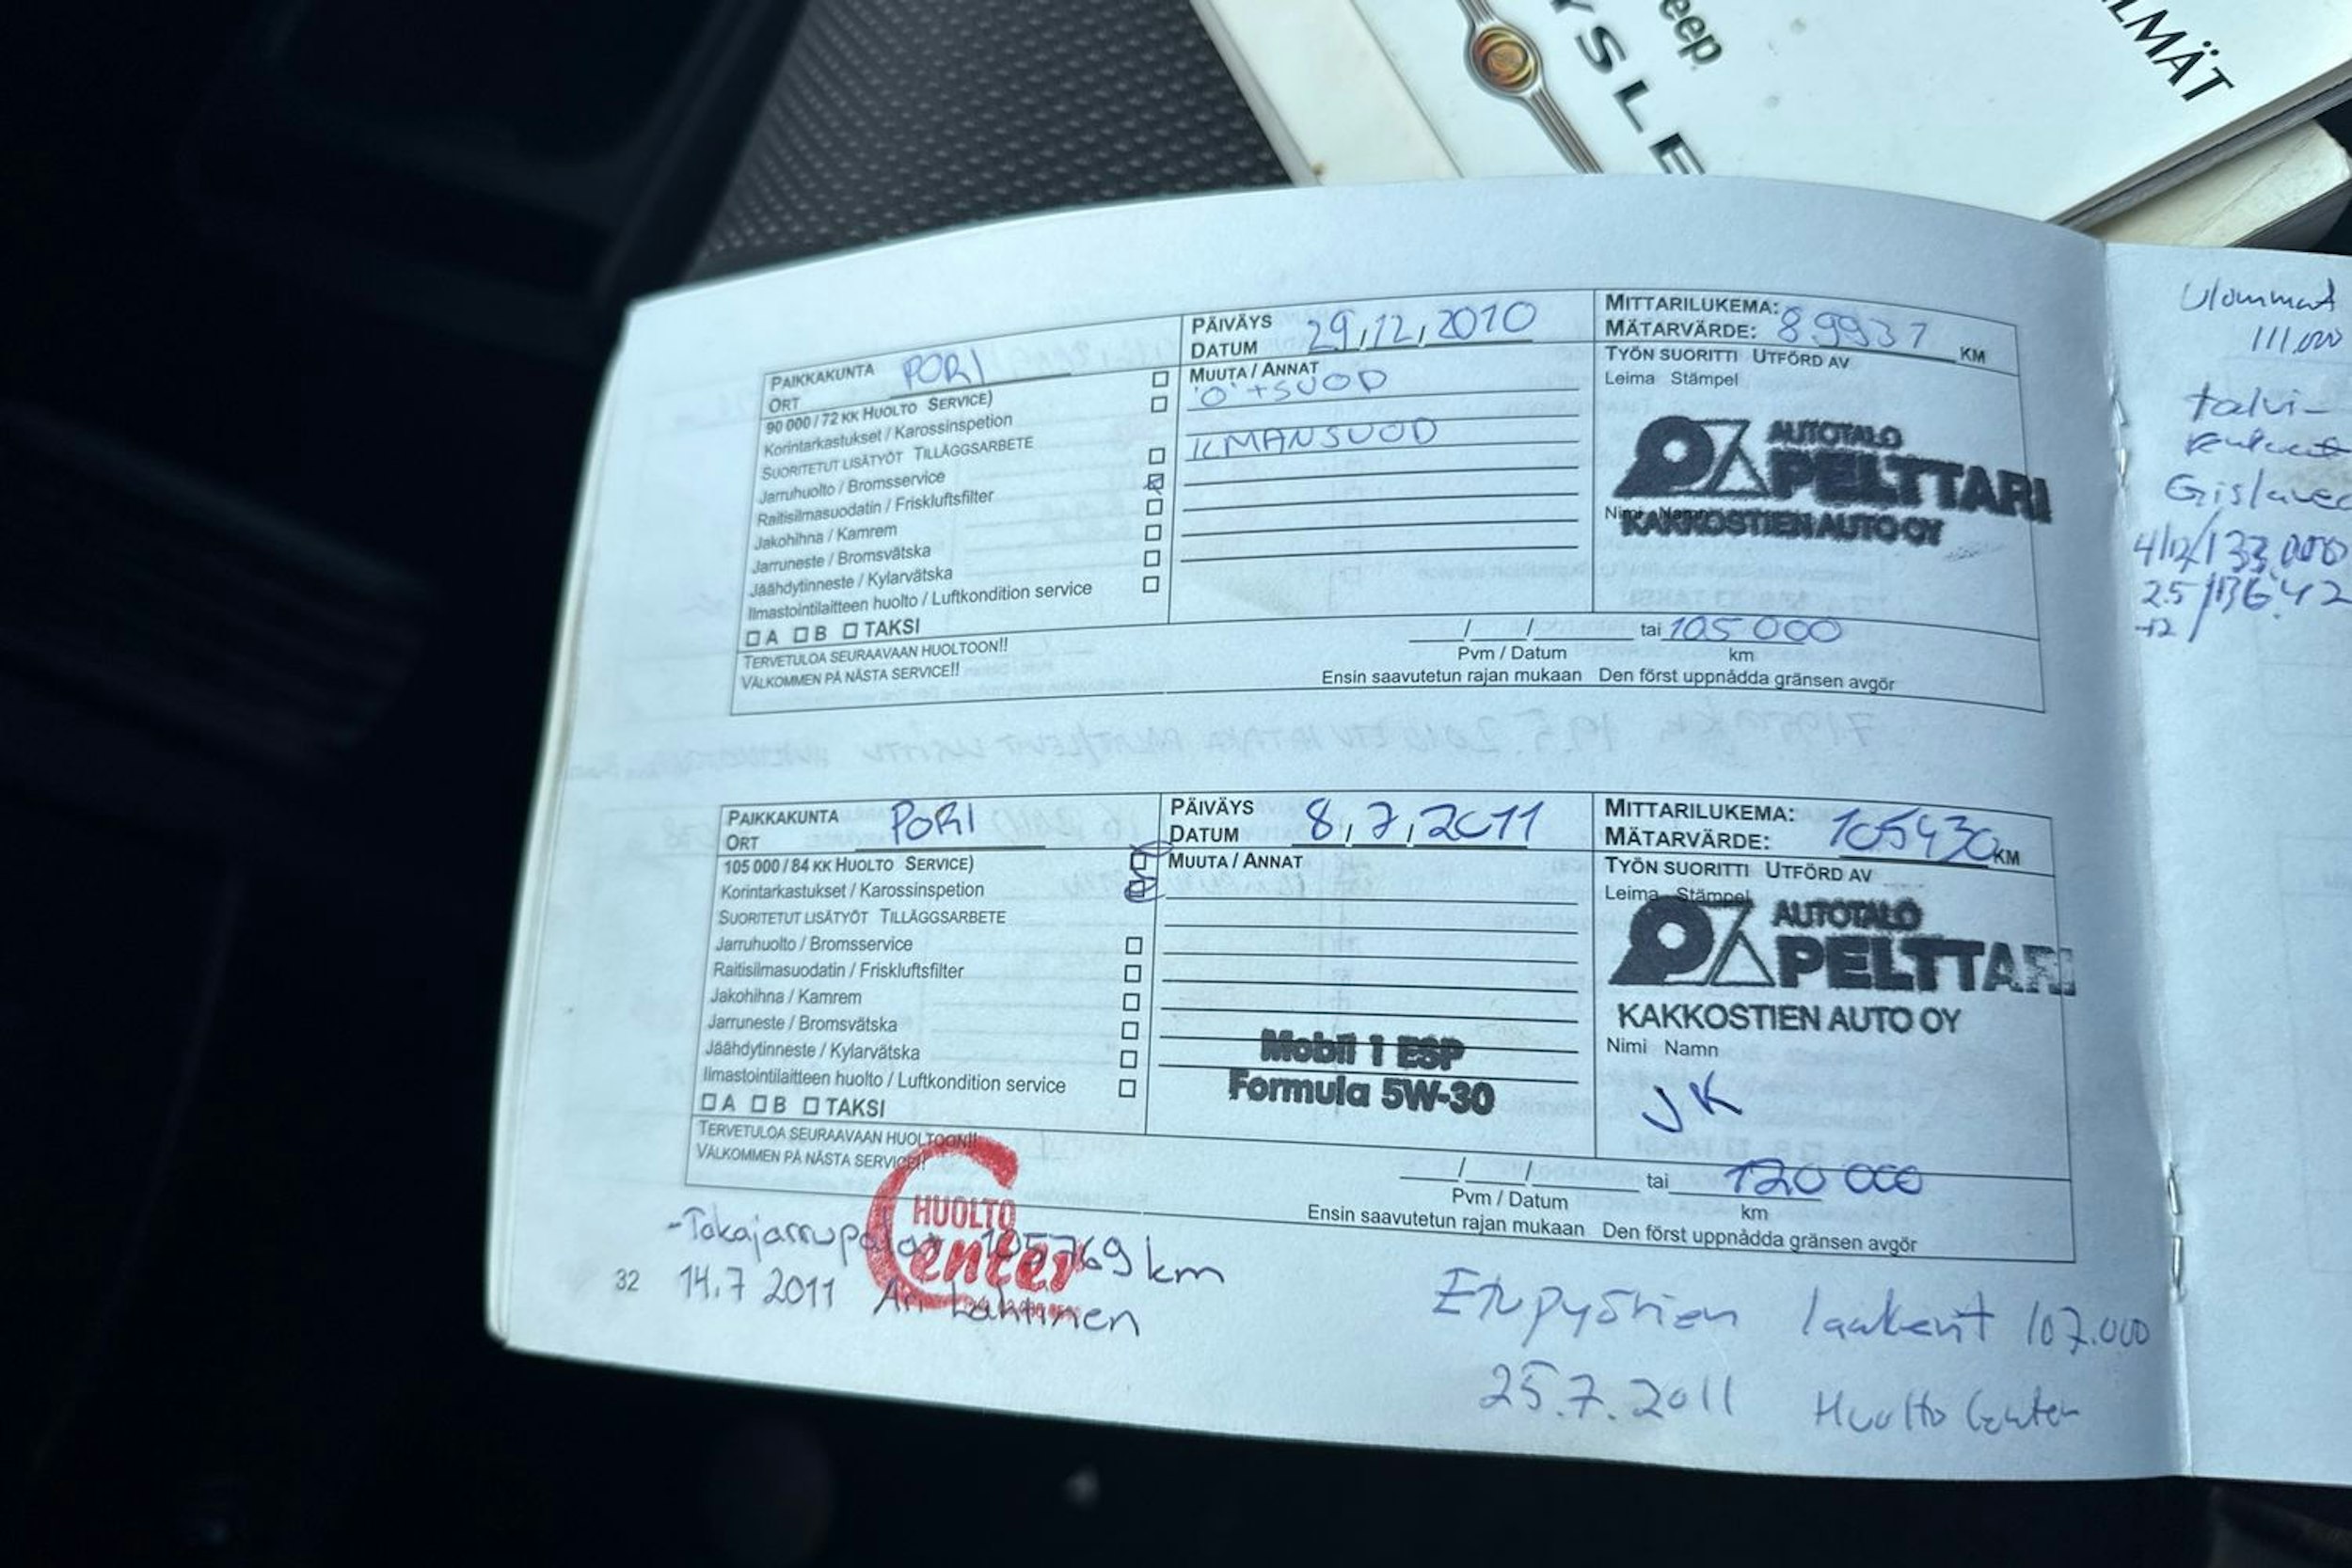 eep
YSLE
LMÄT
PAIKKAKUNTA
ORT
PORI
PÄIVÄYS
DATUM
29,12,2010
MITTARILUKEMA:
MÄTARVÄRDE: 89937 KM
90 000 / 72 KK HUOLTO SERVICE)
Korintarkastukset / Karossinspetion
SUORITETUT LISÄTYÖT TILLÄGGSARBETE
Jarruhuolto / Bromsservice
Raitisilmasuodatin / Friskluftsfilter
Jakohihna / Kamrem
Jarruneste / Bromsvätska
Jäähdytinneste / Kylarvätska
Ilmastointilaitteen huolto / Luftkondition service
A B TAKSI
MUUTA / ANNAT
'Ö' + SUOD
ILMANSUOD
TYÖN SUORITTI UTFÖRD AV
Leima Stämpel
AUTOTALO
PELTTARI
Nimi Namn
KAKKOSTIEN AUTO OY
TERVETULOA SEURAAVAAN HUOLTOON!!
VÄLKOMMEN PÅ NÄSTA SERVICE!!
/ / tai 105 000
Pvm / Datum km
Ensin saavutetun rajan mukaan Den först uppnådda gränsen avgör
PAIKKAKUNTA
ORT
PORI
PÄIVÄYS
DATUM
8,7,2011
MITTARILUKEMA:
MÄTARVÄRDE: 105430 KM
105 000 / 84 KK HUOLTO SERVICE)
Korintarkastukset / Karossinspetion
SUORITETUT LISÄTYÖT TILLÄGGSARBETE
Jarruhuolto / Bromsservice
Raitisilmasuodatin / Friskluftsfilter
Jakohihna / Kamrem
Jarruneste / Bromsvätska
Jäähdytinneste / Kylarvätska
Ilmastointilaitteen huolto / Luftkondition service
A B TAKSI
MUUTA / ANNAT
Mobil 1 ESP
Formula 5W-30
TYÖN SUORITTI UTFÖRD AV
Leima Stämpel
AUTOTALO
PELTTARI
KAKKOSTIEN AUTO OY
Nimi Namn
JK
TERVETULOA SEURAAVAAN HUOLTOON!!
VÄLKOMMEN PÅ NÄSTA SERVICE!!
/ / tai 120 000
Pvm / Datum km
Ensin saavutetun rajan mukaan Den först uppnådda gränsen avgör
HUOLTO
Center
-Takajarrupalat 105769 km
14.7 2011 Ari Lahtinen
32
Etupyörien laakerit 107.000
25.7.2011 Huolto Center
111.000
talvi-
Gislaved
4/12/133.000